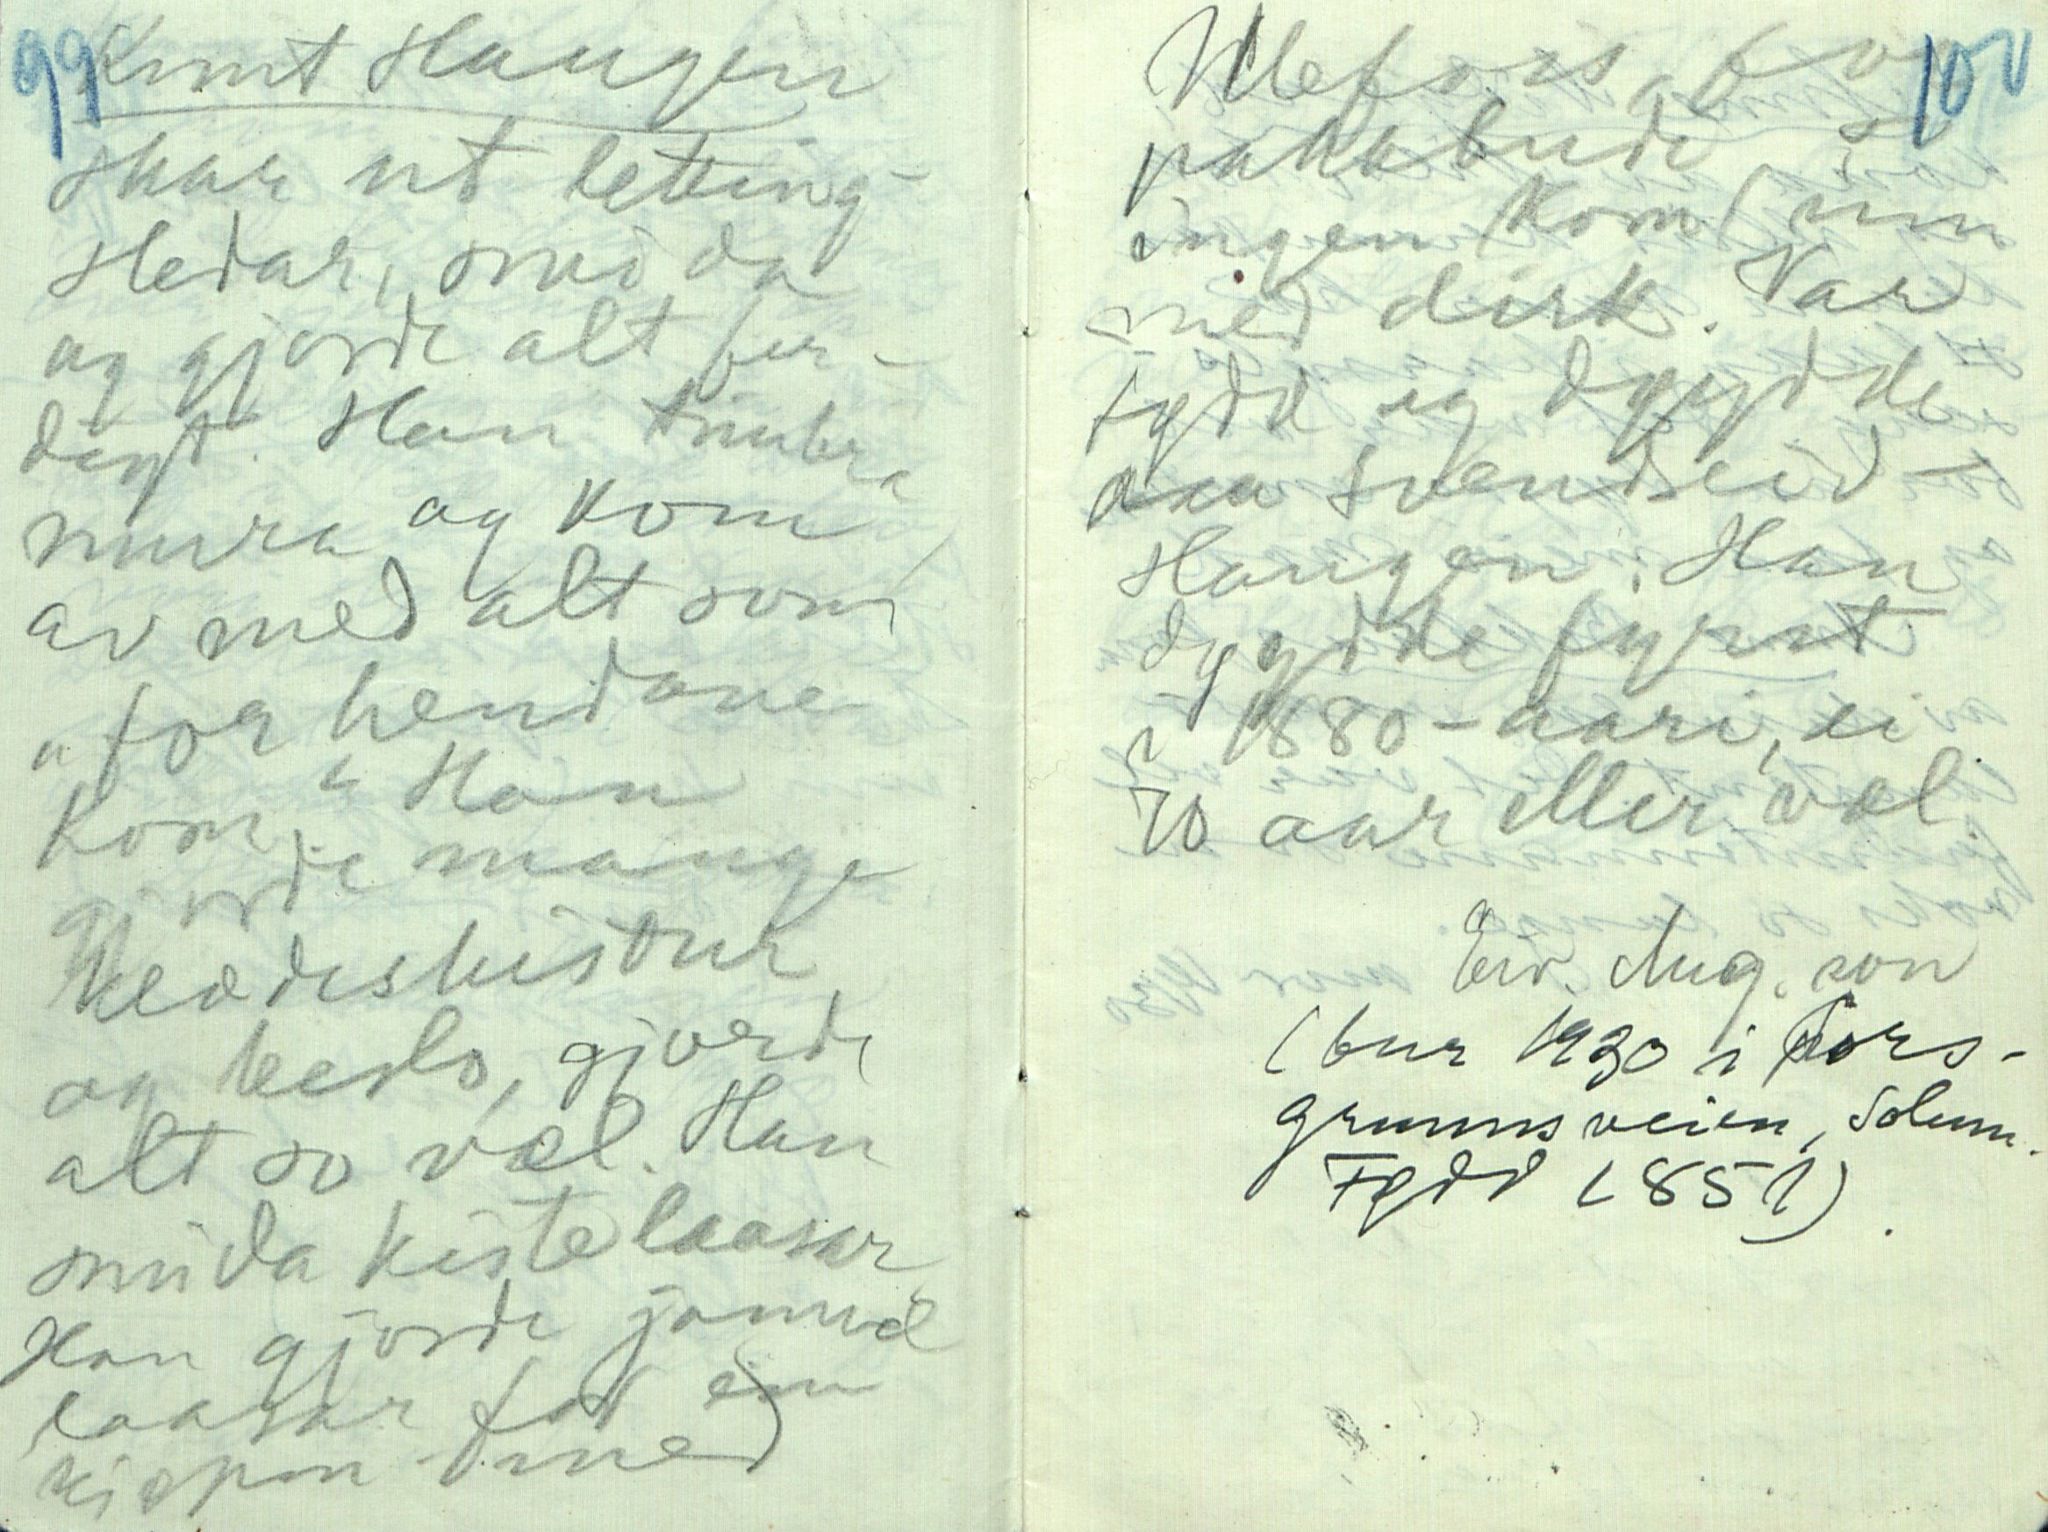 99
Knut Haugen
skar ut letting-
sledar, smida
og gjorde alt fer-
digt. Han timbra
mura og kom
av med alt som
"for hendane
kom". Han
gjorde mange
klædeskistur
og heslo, gjorde
alt so væl. Han
smida kistelaasar
Han gjorde jamvæl
laasar for ein
kjøpm. med
100
Ulefors, for
pakkbudi so
ingen kom inn
med dirk. Var
fødd og døydde
paa Svendseid-
Haugen. Han
døydde fyrst
i 1880-aari, ei
70 aar eller væl.
Eiv. Aug.son
(bur 1930 i Pors-
grunnsveien, Solum.
Fødd 1851).